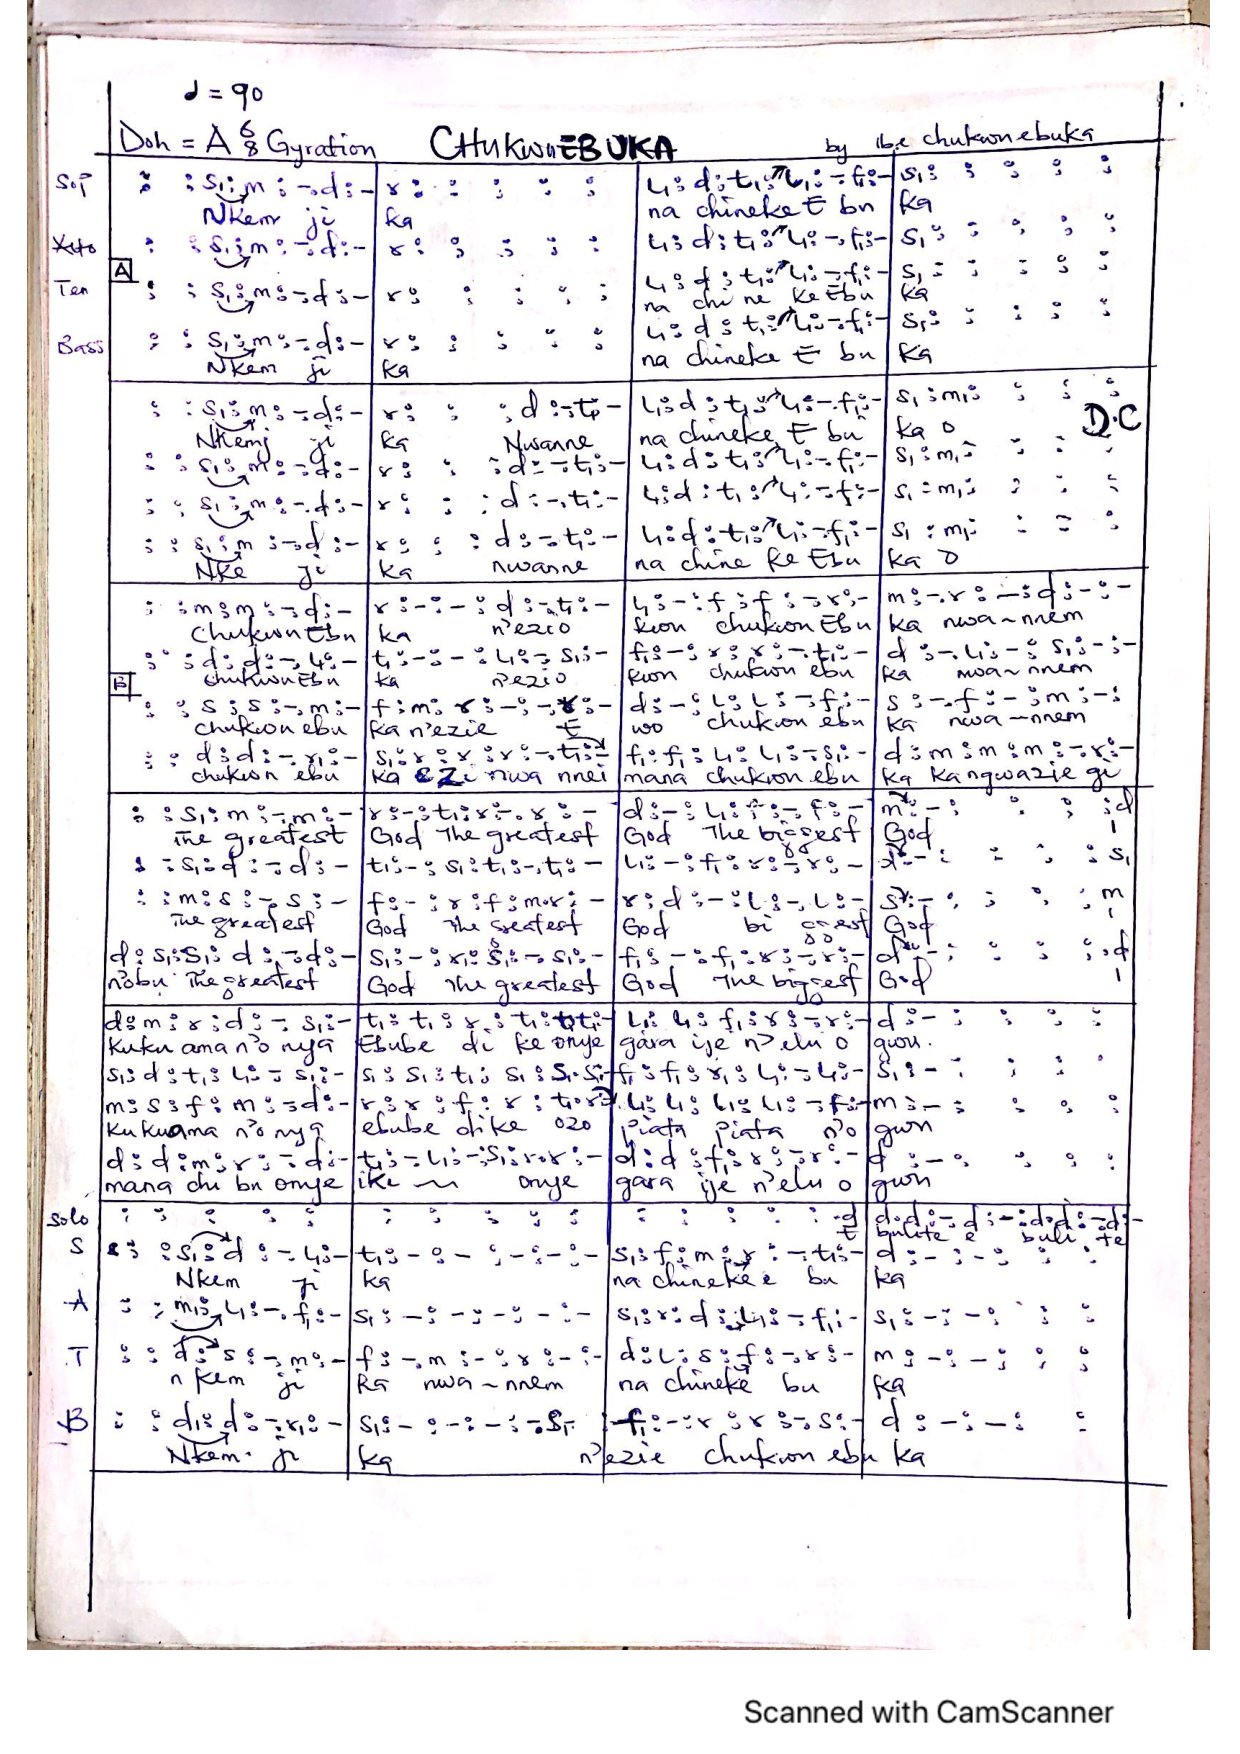 ♩ = 90
Doh = A 6/8 Gyration CHUKWUEBUKA by ibe chukwuebuka
Sop : : s₁ : m : - . d : - | r : : : : : | l₁ : d : t₁ : l₁ : - f₁ : - | s₁ : : : : :
Nkem ji ka na chineke E bu ka
Alto : : s₁ : m : - . d : - | r : : : : : | l₁ : d : t₁ : l₁ : - . f₁ : - | s₁ : : : : :
A
Ten : : s₁ : m : - d : - | r : : : : : | l₁ : d : t₁ : l₁ : - f₁ : - | s₁ : : : : :
na chi ne ke Ebu ka
Bass : : s₁ : m : - d : - | r : : : : : | l₁ : d : t₁ : l₁ : - f₁ : - | s₁ : : : : :
Nkem ji ka na chineke E bu ka
: : s₁ : m : - d : - | r : : : d : - t₁ - | l₁ : d : t₁ : l₁ : - . f₁ : - | s₁ : m₁ : : : :
D.C
ji ka Nwanne na chineke E bu ka o
: : s₁ : m : - d : - | r : : : d : - t₁ : - | l₁ : d : t₁ : l₁ : - f₁ : - | s₁ : m₁ : : : :
: : s₁ : m : - . d : - | r : : : d : - . t₁ : - | l₁ : d : t₁ : l₁ : - f₁ : - | s₁ : m₁ : : : :
: : s₁ : m : - d : - | r : : : d : - t₁ : - | l₁ : d : t₁ : l₁ : - f₁ : - | s₁ : m₁ : : :
Nke ji ka nwanne na chine ke Ebu ka o
: : m : m : - d : - | r : - : - : d : - t₁ : - | l₁ : - : f : f : - r : - | m : - . r : - : d : - : -
Chukwu Ebu ka n'ezio kwu chukwu Ebu ka nwa - nnem
: : d : d : - l₁ : - | t₁ : - : - : l₁ : - s₁ : - | f₁ : - : r : r : - . t₁ : - | d : - . l₁ : - : s₁ : - : -
chukwu Ebu ka n'ezio kwu chukwu ebu ka nwa - nnem
B
: : s : s : - . m : - | f : m : r : - : - r : - | d : - : l : l : - f : - | s : - . f : - : m : - :
chukwu ebu ka n'ezie E wo chukwu ebu ka nwa - nnem
: : d : d : - r₁ : - | s₁ : r : r : r : - . t₁ : - | f₁ : f₁ : l₁ : l₁ : - s₁ : - | d : m : m : m : - r : -
chukwu ebu ka EZi nwa nnei mana chukwu ebu ka kangwazie gi
: : s₁ : m : - m : - | r : - : t₁ : r : - . r : - | d : - : l₁ : f : - f : - | m : - : : : : d
The greatest God The greatest God The biggest God I
: : s₁ : d : - d : - | t₁ : - : s₁ : t₁ : - . t₁ : - | l₁ : - : f₁ : r : - r : - | d : - : : : : s₁
: : m : s : - s : - | f : - : r : f : m . r : - | r : d : - : l : - . l : - | s : - : : : : m
The greatest God The greatest God bi ggest God I
d : s₁ : s₁ : d : - d : - | s₁ : - : r₁ : s₁ : - s₁ : - | f₁ : - : f₁ : r : - r : - | d : - : : : : d
n'obu The greatest God The greatest God The biggest God I
d : m : r : d : - s₁ : - | t₁ : t₁ : r : t₁ : t₁ : - | l₁ : l₁ : f₁ : r : - r : - | d : - : : : :
Kuku ama n'o nya Ebube di ke onye gara ije n'elu o gwu.
s₁ : d : t₁ : l₁ : - s₁ : - | s₁ : s₁ : t₁ : s₁ : s₁ . s₁ - | f₁ : f₁ : r₁ : l₁ : - l₁ : - | s₁ : - : : : :
m : s : f : m : - d : - | r : r : f : r : t₁ . r | l₁ : l₁ : l₁ : l₁ : - f : - | m : - : : : :
Kukuama n'o nya ebube dike ozo piata piata n'o gwu
d : d : m : r : - d : - | t₁ : - l₁ : - : s₁ : r . r : - | d : d : f₁ : r : - r : - | d : - : : : :
mana chi bu onye ike onye gara ije n'elu o gwu
Solo : : : : : | : : : : : | : : : : : . d | d . d : - d : - : d . d : - d : -
E bulite e buli te
S : : s₁ : d : - l₁ : - | t₁ : - : - : - : - : - | s₁ : f : m : r : - t₁ : - | d : - : - : : :
Nkem ji ka na chineke e bu ka
A : : m₁ : l₁ : - . f₁ : - | s₁ : - : - : - : - : - | s₁ : r : d : l₁ : - f₁ : - | s₁ : - : - : : :
T : : d : s : - . m : - | f : - . m : - : r : - : - | d : l : s : f : - . r : - | m : - : - : : :
n kem ji ka nwa - nnem na chineke bu ka
B : : d₁ : d : - r₁ : - | s₁ : - : - : - : - . s₁ - | f₁ : - : r : r : - s : - | d : - : - : :
Nkem. ji ka n'ezie chukwu ebu ka
Scanned with CamScanner